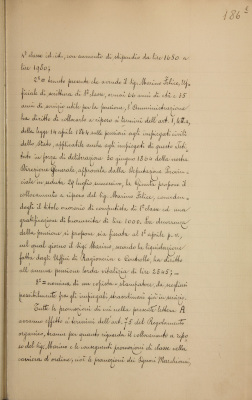 186ᵉ
4ª classe ed alte, con aumento di stipendio da lire 1680 a
lire 1980;
2º= tenuto presente che avendo il Sig. Marino Felice, Uf-
ficiale di scrittura di 1ª classe, ormai 66 anni di età e 25
anni di servizio utile per la pensione, l'Amministrazione
ha diritto di collocarlo a riposo ai termini dell'art. 1,
della legge 14 aprile 1864 sulle pensioni agli impiegati civili
dello Stato, applicabile anche agli impiegati di questo Isti-
tuto in forza di deliberazione 20 giugno 1894 della nostra
Direzione Generale, approvata dalla Deputazione Provin-
ciale in seduta 29 luglio successivo, la Giunta propone il
collocamento a riposo del Sig. Marino Felice, conceden-
dogli il titolo onorario di computista di 1ª classe ed una
gratificazione di buonuscita di lire 1000. La decorrenza
della pensione si propone sia fissata al 1º aprile p. v.,
nel qual giorno il Sig. Marino, secondo la liquidazione
fatta dagli Uffici di Ragioneria e Controllo, ha diritto
all'annua pensione lorda vitalizia di lire
3º= nomina di un copista stampatore, da scegliersi
possibilmente fra gli impiegati straordinari già in servizio.
Tutte le promozioni di cui nella presente lettera A
saranno effettive a termini dell'art. 75 del Regolamento
organico, tranne per quanto riguarda il collocamento a ripo-
so del Sig. Marino e le conseguenti promozioni di classe nella
carriera d'ordine; così le promozioni dei Signori